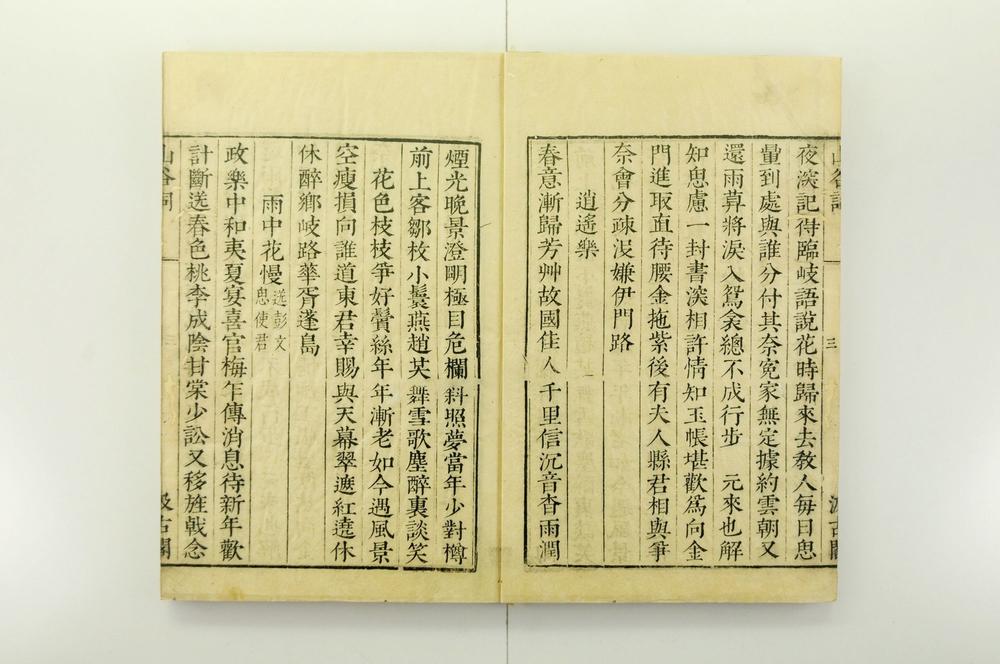 夜深記得臨岐語說花時歸來去教人每日思
量到處與誰分付其奈冤家無定據約雲朝又
還雨暮將淚入鴛衾總不成行步　元來也解
知思慮一封書深相許情知玉帳堪歡爲向金
門進取直待腰金拖紫後有夫人縣君相與爭
奈會分疎沒嫌伊門路
逍遙樂
春意漸歸芳艸故國佳人千里信沉音杳雨潤
煙光晚景澄明極目危欄斜照夢當年少對樽
前上客鄒枚小鬟燕趙共舞雪歌塵醉裏談笑
花色枝枝爭好鬢絲年年漸老如今遇風景
空瘦損向誰道東君幸賜與天幕翠遮紅遶休
休醉鄉岐路華胥蓬島
雨中花慢 送彭文思使君
政樂中和夷夏宴喜官梅乍傳消息待新年歡
計斷送春色桃李成陰甘棠少訟又移旌戟念
三
山谷詞
汲古閣